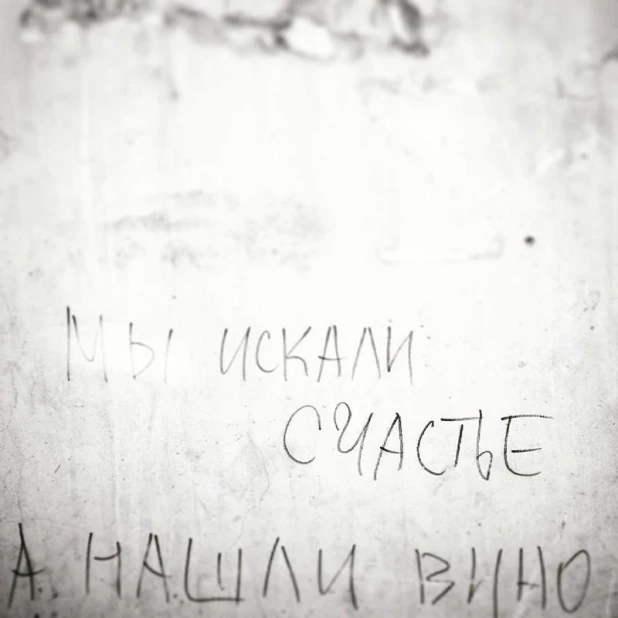 Мы искали
счастье
А нашли вино